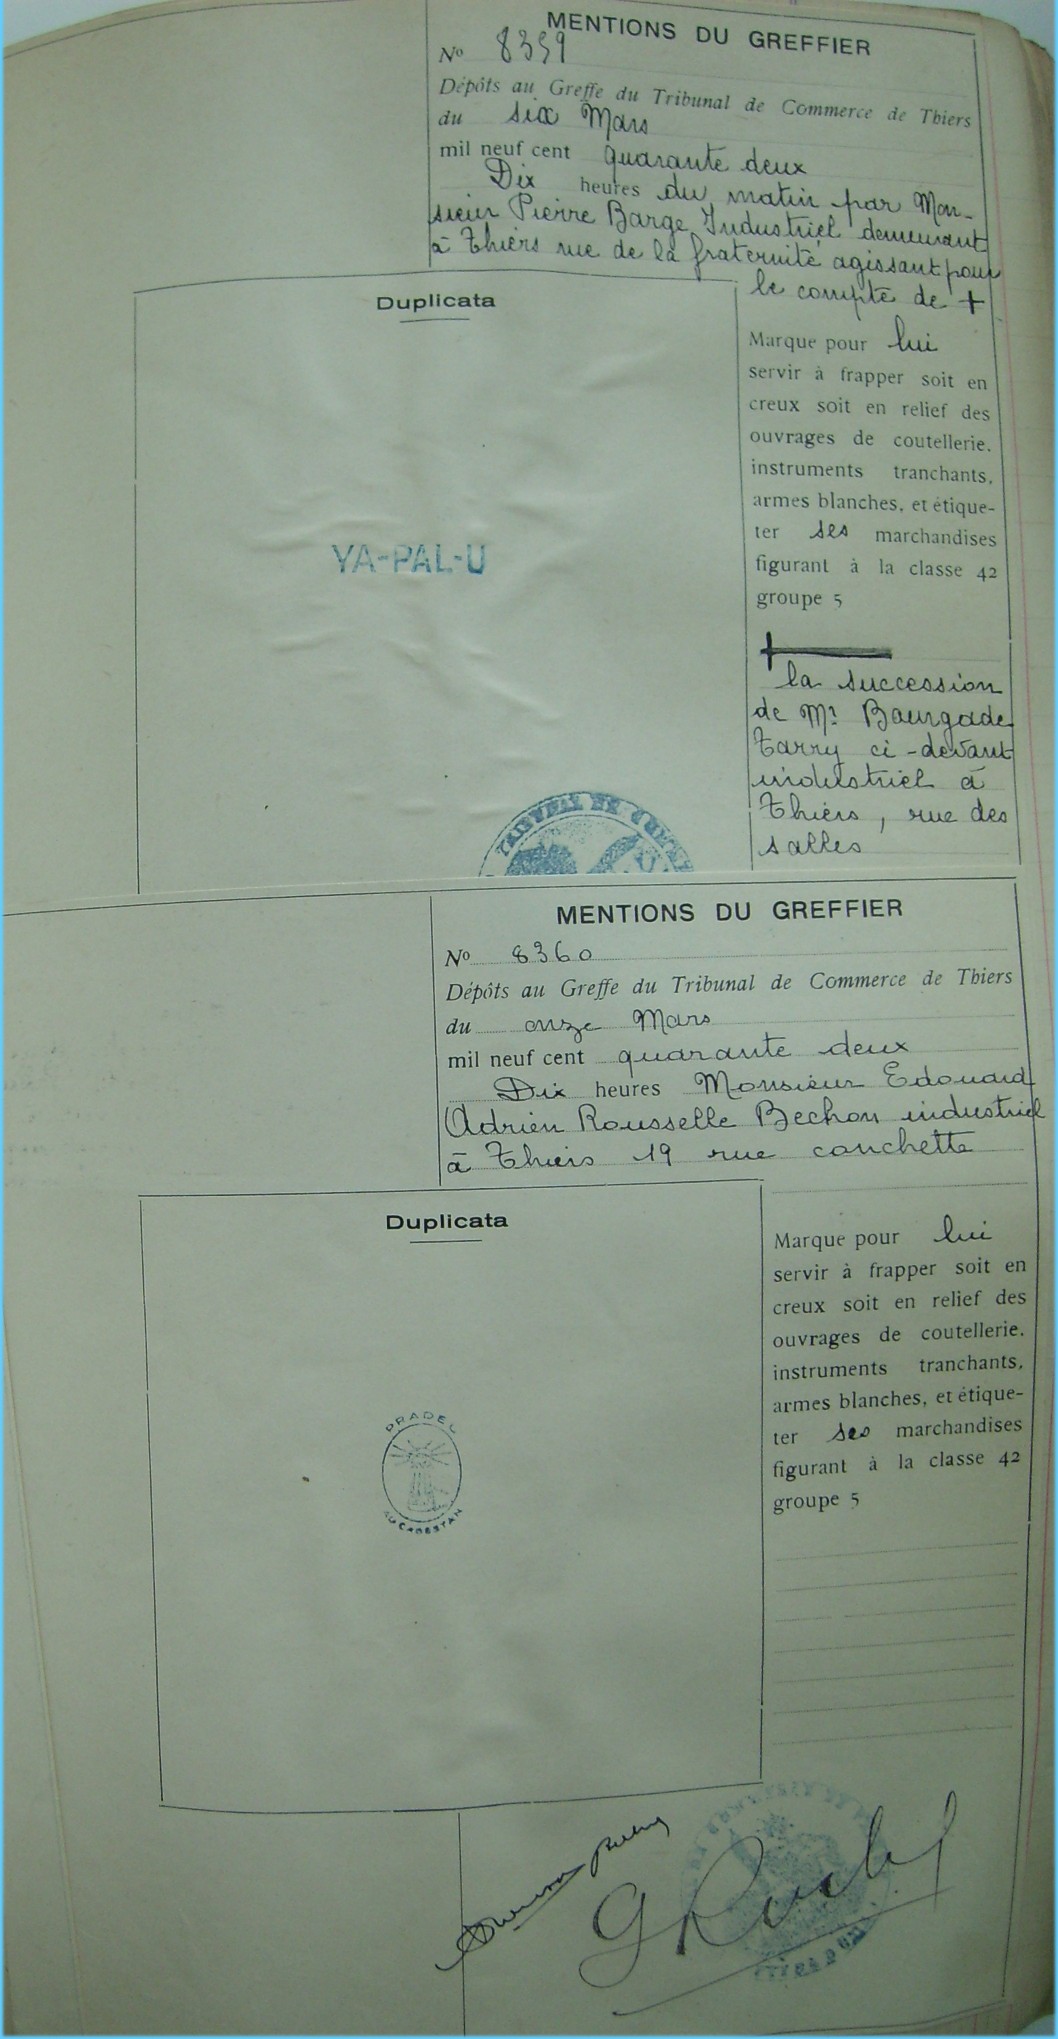 MENTIONS DU GREFFIER
No 8359
Dépôts au Greffe du Tribunal de Commerce de Thiers
du six Mars
mil neuf cent quarante deux
Dix heures du matin par Mon-
sieur Pierre Barge Industriel demeurant
à Thiers rue de la fraternité agissant pour
le compte de +
Duplicata
YA-PAL-U
Marque pour lui
servir à frapper soit en
creux soit en relief des
ouvrages de coutellerie,
instruments tranchants,
armes blanches, et étique-
ter ses marchandises
figurant à la classe 42
groupe 5
+
la succession
de Mr Bourgade
Tarry ci-devant
industriel à
Thiers, rue des
salles
MENTIONS DU GREFFIER
No 8360
Dépôts au Greffe du Tribunal de Commerce de Thiers
du onze Mars
mil neuf cent quarante deux
Dix heures Monsieur Edouard
Adrien Rousselle Bechon industriel
à Thiers 19 rue conchette
Duplicata
PRADEL
AU CABESTAN
Marque pour lui
servir à frapper soit en
creux soit en relief des
ouvrages de coutellerie,
instruments tranchants,
armes blanches, et étique-
ter ses marchandises
figurant à la classe 42
groupe 5